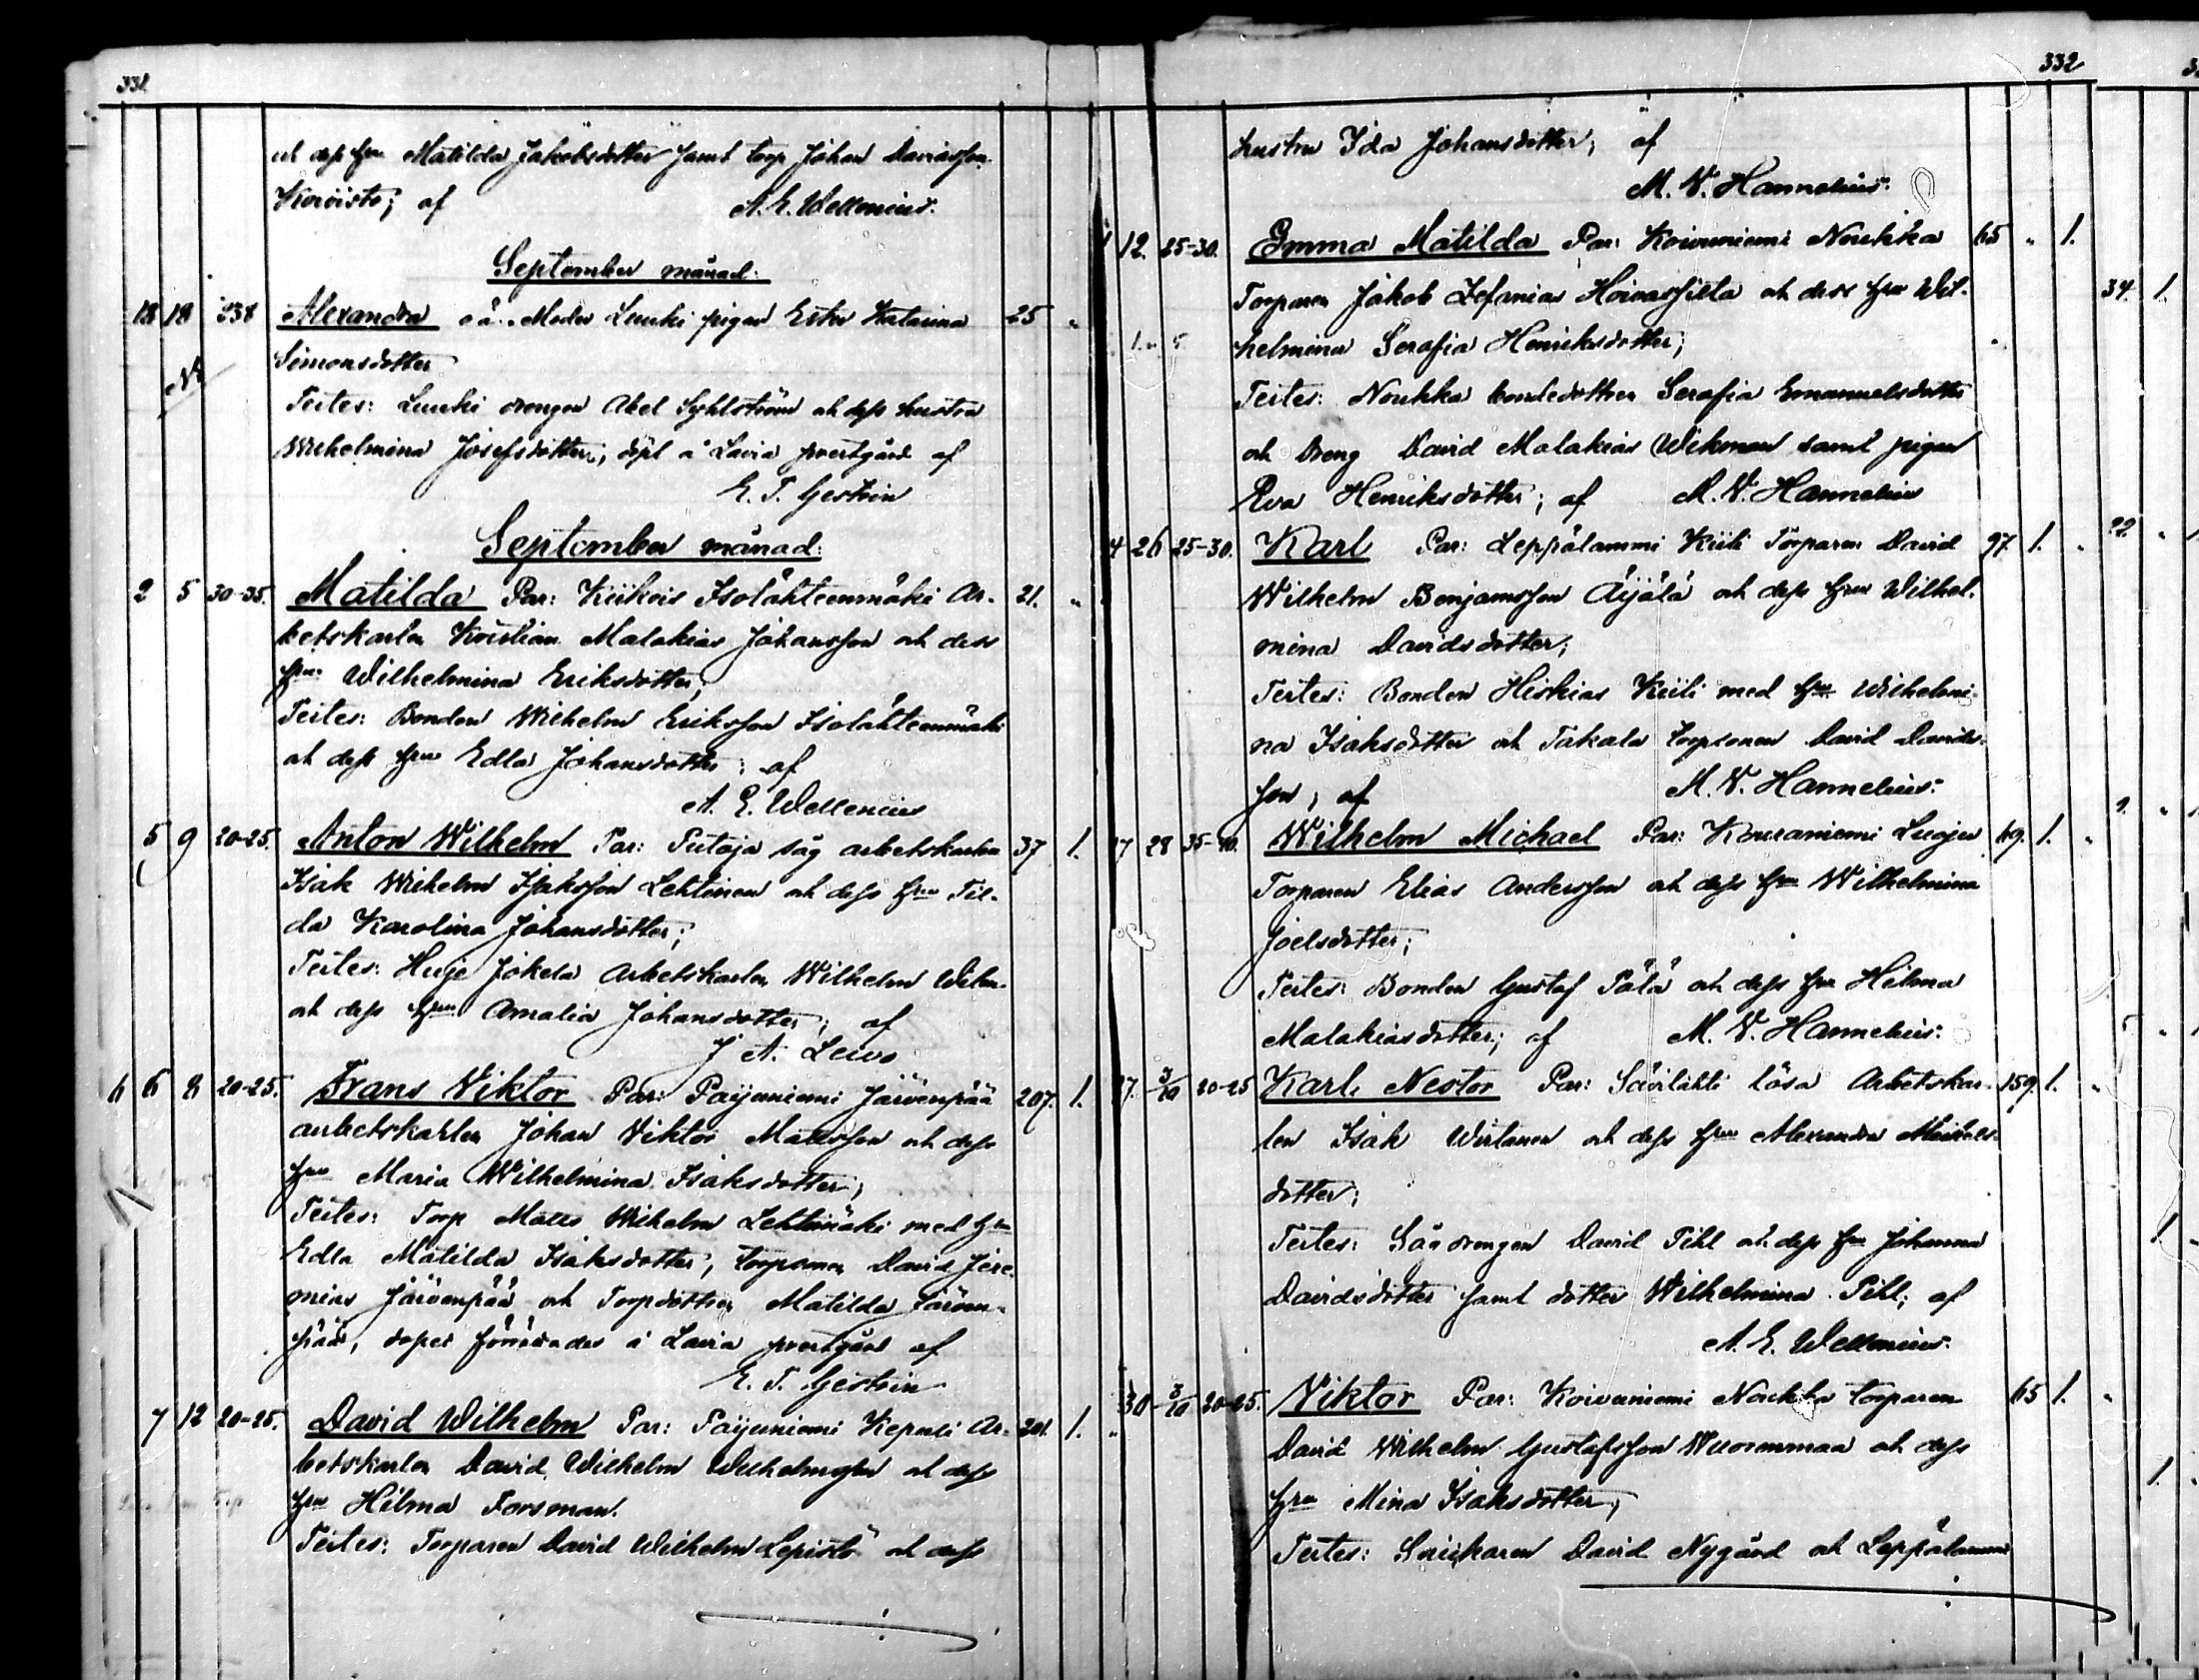 331.
och dess hru Matilda Jakobsdotter samt torp Johan Davidsson
Koivisto; af A. E. Wellenius.
September månad.
18 18 238 Alexandra o ä. Moder Lemki pigan Ester Katarina 25 "
Simonsdotter
Testes: Lemki drengen Abel Syhlström och dess hustru
Wilhelmina Josefsdotter; döpt i Lavia prestgård af
E. T. Gestrin
September månad:
2 5 30-35. Matilda Par: Kiikois Isolähteenmäki Ar- 21. "
betskarlen Kristian Malakias Johansson och dess
hru Wilhelmina Eriksdotter;
Testes: Bonden Wilhelm Eriksson Isolähteenmäki
och dess hru Edla Johansdotter; af
A. E. Wellenius
5 9 20-25. Anton Wilhelm Par: Putaja såg arbetskarlen 37 1.
Isak Wilhelm Isaksson Lehtinen och dess hru Til-
da Karolina Johansdotter;
Testes: Jokela Arbetskarlen Wilhelm
och dess hru Amalia Johansdotter; af
J A. Leivo
6 6 8 20-25. Frans Viktor Par: Payuniemi Järvenpää 207. 1.
arbetskarlen Johan Viktor Mattsson och dess
hru Maria Wilhelmina Isaksdotter;
Testes: Torp Matts Wilhelm Lehtimäki med hru
Edla Matilda Isaksdotter, torparen David Jere-
mias Järvenpää och Torpdottren Matilda Järven-
pää, dopet förrättades i Lavia prestgård af
E. T. Gestrin
7 12 20-25. David Wilhelm Par: Payuniemi Kepuli Ar- 201. 1. "
betskarlen David Wilhelm Wilhelmsson och dess
hru Hilma Forsman.
Testes: Torparen David Wilhelm Lepistö och dess
332
hustru Ida Johansdotter; af
M. V. Hannelius.
12. 25-30. Emma Matilda Par: Koivuniemi Noukka 65 " 1.
Torparen Jakob Zefanias och dess hru Wil-
helmina Serafia Henriksdotter;
Testes: Noukka bondedottren Serafia Emanuelsdotter
och Dreng David Malakias Wikman samt pigan
Eva Henriksdotter; af M. V. Hannelius
4 26 25-30. Karl Par: Leppälammi Kiili Torparen David 97 1. "
Wilhelm Benjamsson Äijälä och dess hru Wilhel-
mina Davidsdotter;
Testes: Bonden Hiskias Kiili med hru Wilhelmi-
na Isaksdotter och Takala torpsonen David Davids-
son; af M. V. Hannelius.
17 28 35-40. Wilhelm Michael Par: Kouraniemi 69. 1. "
Torparen Elias Andersson och dess hru Wilhelmina
Joelsdotter;
Testes: Bonden Gustaf Pälä och dess hru Hilma
Malakiasdotter; af M. V. Hannelius.
27. 3/10 20-25 Karl Nestor Par: Suvilahti lösa Arbetskar- 159. 1. "
len Isak Wirtanen och dess hru Alexandra Mikaels-
dotter;
Testes: drengen David Pihl och dess hru Johanna
Davidsdotter samt dotter Wilhelmina Pihl; af
A. E. Wellenius.
30 3/10 20-25. Viktor Par: Koivuniemi Noukka torparen 65 1. "
David Wilhelm Gustafsson Wuorenmaa och dess
hru Mina Isaksdotter;
Testes: Snickaren David Nygård och Leppälammi
34. 1.
22